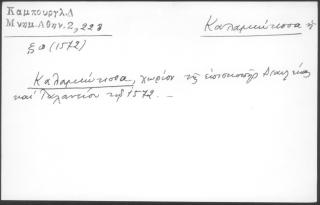 Καμπουρογλ.Δ
Μνημ.Αθην.2,223
Καλαμιώτισσα ἡ
ξα (1572)
Καλαμιώτισσα, χωρίον τῆς ἐπισκοπῆς Διαυλείας
καὶ Ταλαντίου τοῦ 1572. —